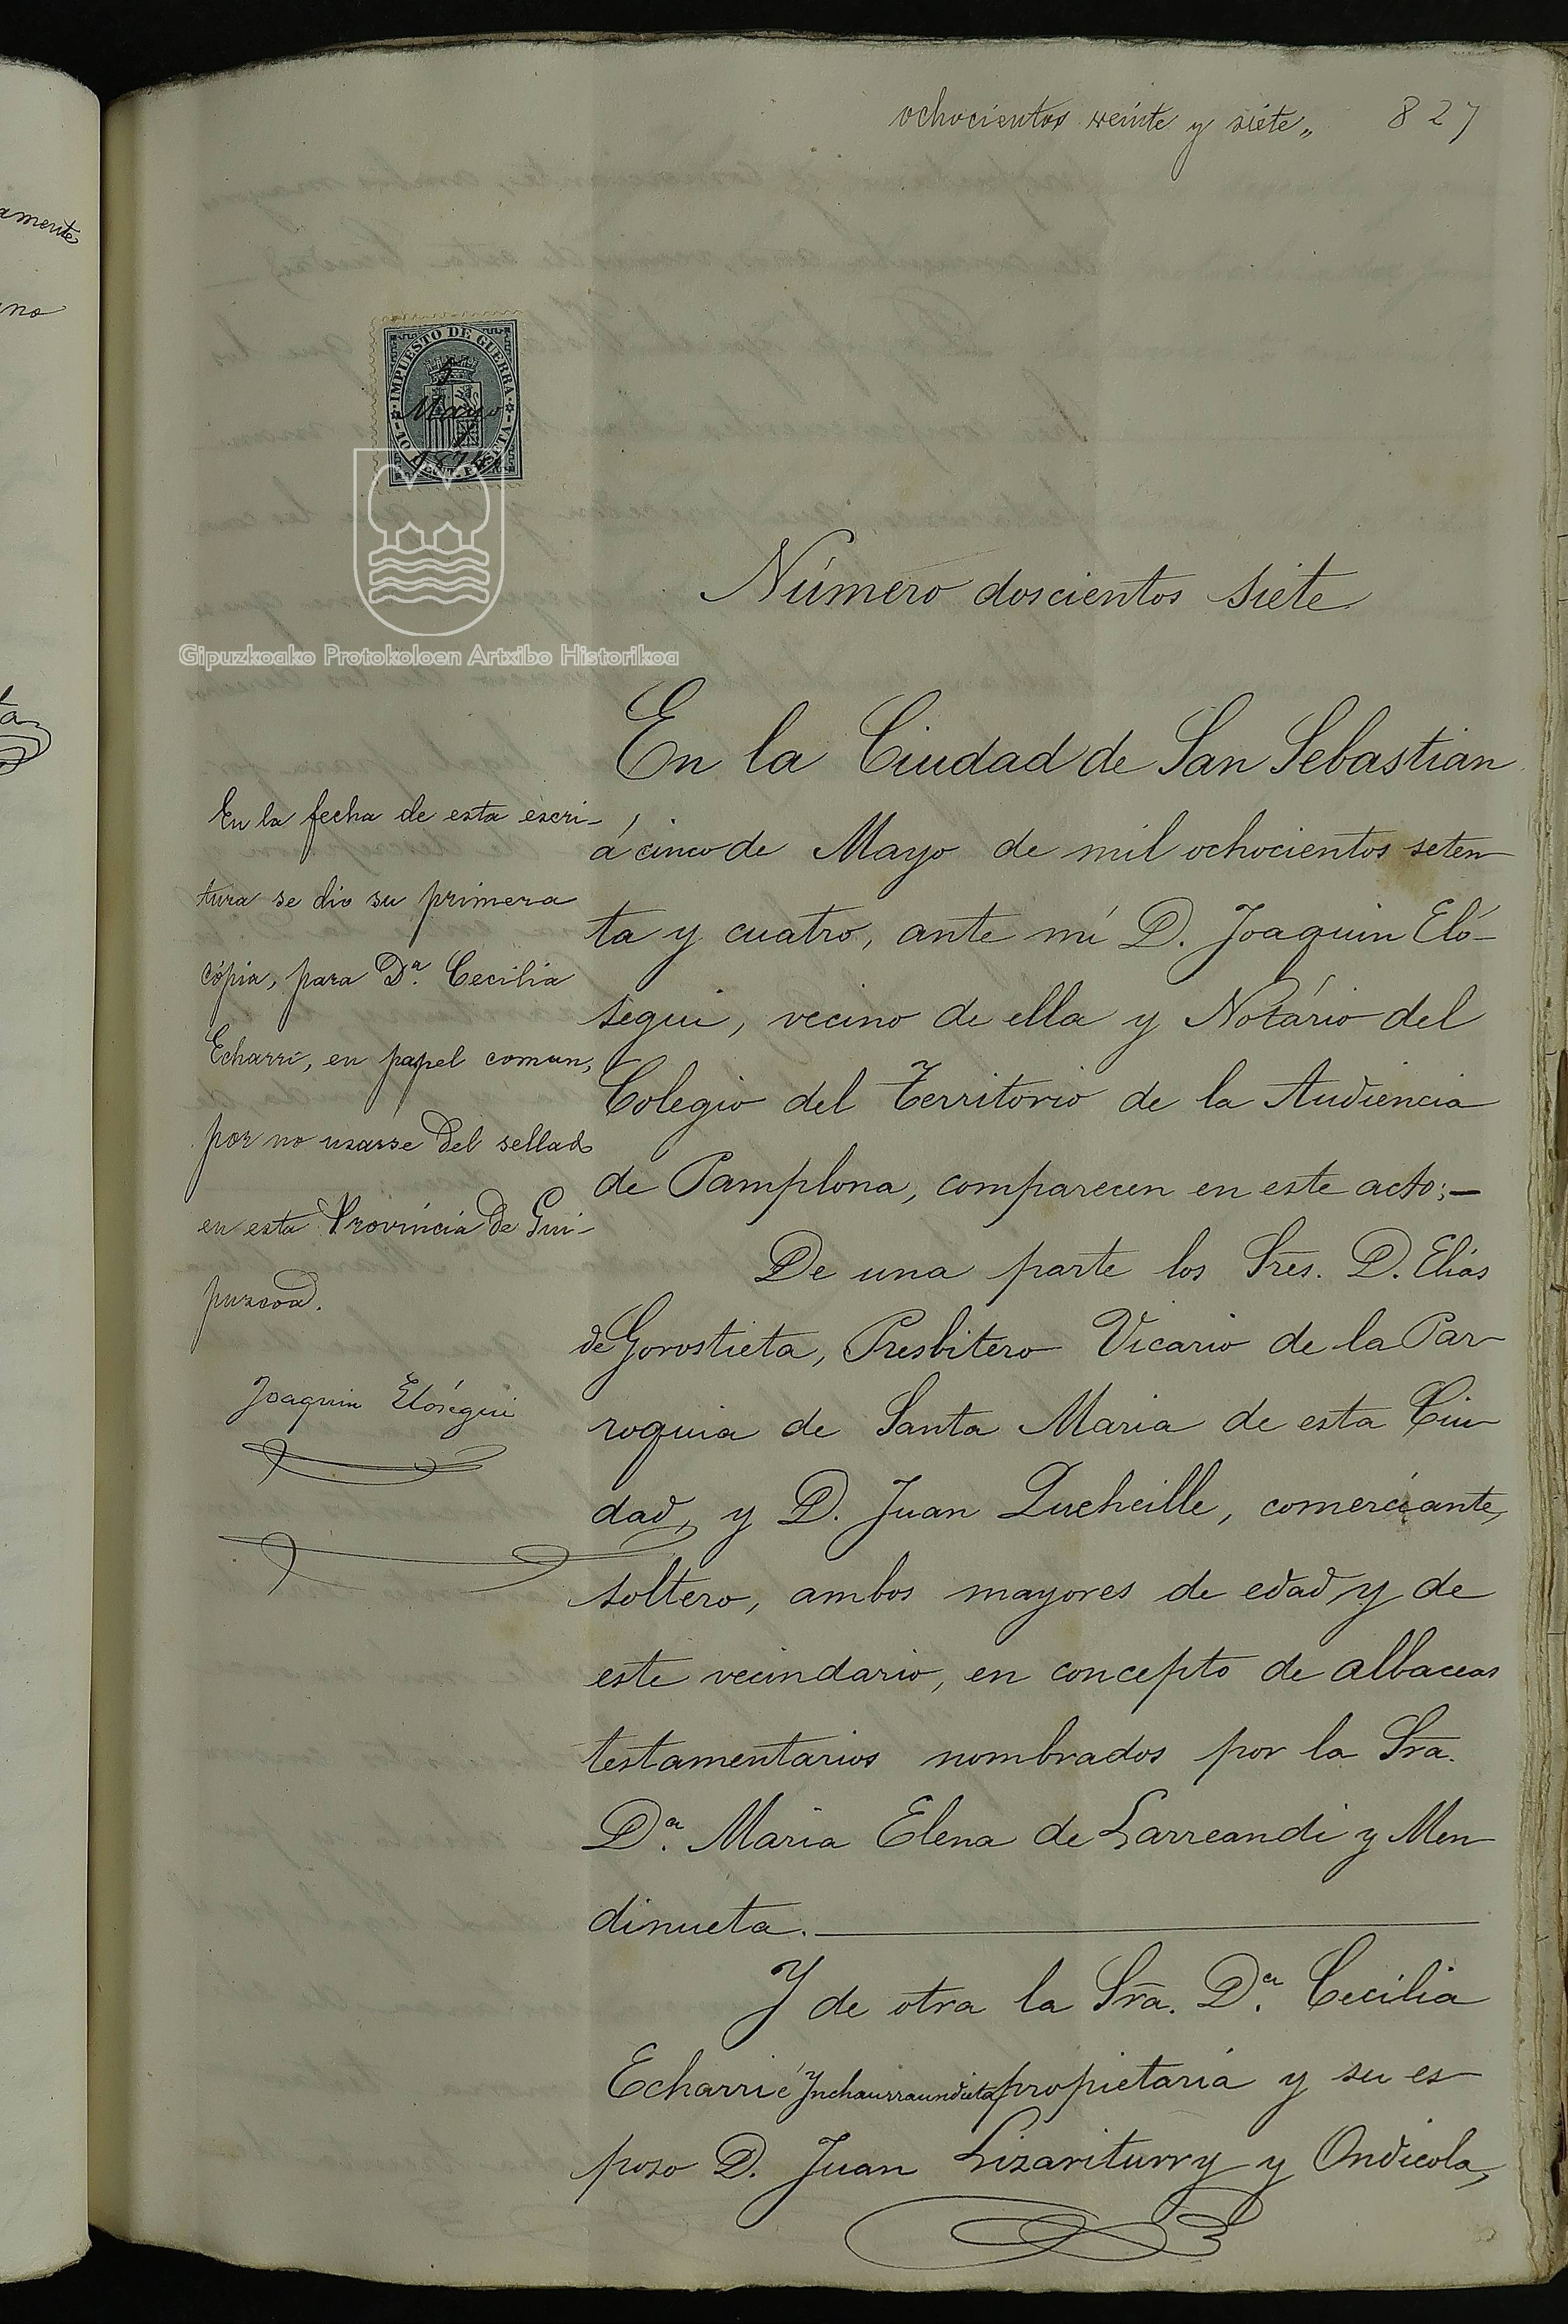 ochocientos veinte y siete„ 827
amente
no
IMPUESTO DE GUERRA
5
Mayo
1874
10 CENT. PESETA
Gipuzkoako Protokoloen Artxibo Historikoa
Número doscientos siete
En la Ciudad de San Sebastian
á cinco de Mayo de mil ochocientos seten
ta y cuatro, ante mí D. Joaquin Eló-
segui, vecino de ella y Notário del
Colegio del Territorio de la Audiencia
de Pamplona, comparecen en este acto:—
De una parte los Sres. D. Elías
de Gorostieta, Presbitero Vicario de la Par-
roquia de Santa Maria de esta Ciu-
dad, y D. Juan Queheille, comerciante,
soltero, ambos mayores de edad y de
este vecindario, en concepto de albaceas
testamentarios nombrados por la Sra.
Dª. Maria Elena de Larreandi y Men-
dinueta.
Y de otra la Sra. Dª. Cecilia
Echarri é Ynchaurraundieta propietaria y su es-
poso D. Juan Lizariturry y Ondicola,
En la fecha de esta escri-
tura se dio su primera
cópia, para Dª. Cecilia
Echarri, en papel comun,
por no usarse del sellado
en esta Provincia de Gui-
puzcoa.
Joaquin Elósegui